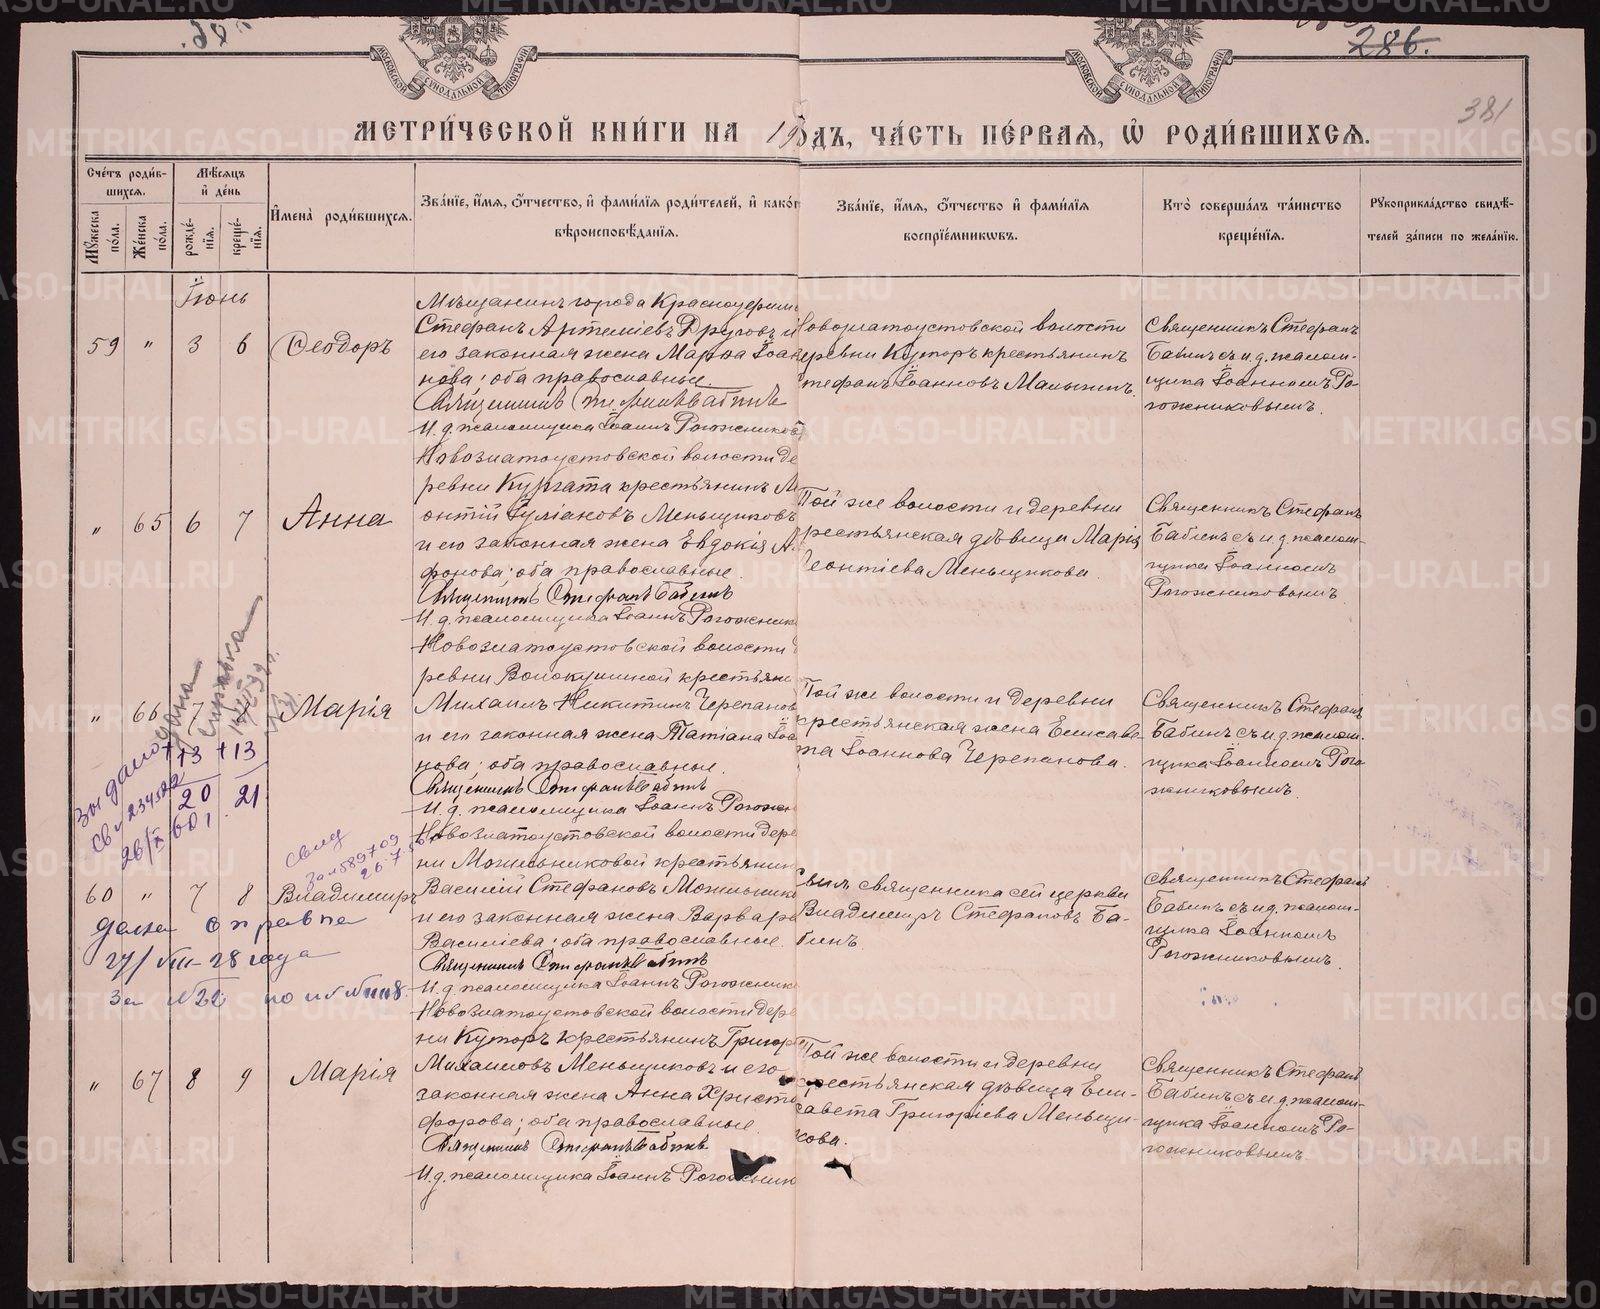 286.
381
МЕТРИ́ЧЕСКОЙ КНИ́ГИ НА 19 ГОДЪ, ЧА́СТЬ ПЕ́РВАЯ, Ѡ҆ РОДИ́ВШИХСЯ.
Сче́тъ роди́в-
шихся.
Мꙋ́жеска по́ла.
Же́нска по́ла.
Мѣ́сяцъ и҆ де́нь
рожде́-
нїѧ.
креще́-
нїѧ.
И҆мена̀ роди́вшихся.
Зва́нїе, и҆́мя, ѻ҆́тчество, и҆ фами́лїя роди́телей, и҆ како́г
вѣроисповѣ́данїя.
Зва́нїе, и҆́мя, ѻ҆́тчество и҆ фами́лїя
воспрїе́мникѡвъ.
Кто̀ соверша́лъ та́инство
креще́нїя.
Рꙋкоприкла́дство свидѣ́-
телей за́писи по жела́нїю.
Іюнь
59 " 3 6 Ѳеодоръ
Мѣщанинъ города Красноуфим
Стефанъ Артеміевъ Друговъ и
его законная жена Марѳа Іоан
нова; оба православные.
Священникъ Стефанъ Бабинъ
И. д. псаломщика Іоаннъ Рогожников
Новозлатоустовской волости
деревни Куторъ крестьянинъ
Стефанъ Іоанновъ Малышинъ.
Священникъ Стефанъ
Бабинъ съ и. д. псалом-
щика Іоанномъ Ро-
гожниковымъ.
" 65 6 7 Анна
Новозлатоустовской волости де
ревни Кургата крестьянинъ Л
онтій Іуліановъ Меньщиковъ
и его законная жена Евдокія А
фонова; оба православные.
Священникъ Стефанъ Бабинъ
И. д. псаломщика Іоаннъ Рогожник
Той же волости и деревни
крестьянская дѣвица Марія
Леонтіева Меньщикова.
Священникъ Стефанъ
Бабинъ съ и. д. псалом-
щика Іоанномъ
Рогожниковымъ.
" 66 7 Марія
+13 +13
20 21
Новозлатоустовской волости
ревни Волокушиной крестьян
Михаилъ Никитинъ Черепанов
и его законная жена Татіана Іоа
нова; оба православные.
Священникъ Стефанъ Бабинъ
И. д. псаломщика Іоаннъ Рогожн
Той же волости и деревни
крестьянская жена Елисаве
та Іоаннова Черепанова.
Священникъ Стефанъ
Бабинъ съ и. д. псалом.
щика Іоанномъ Рого
жниковымъ.
дана
60 " 7 8 Владимиръ
Новозлатоустовской волости дере
ни Могильниковой крестьянин
Василій Стефановъ Могильнико
и его законная жена Варвара
Василіева; оба православные.
Священникъ Стефанъ Бабинъ
И. д. псаломщика Іоаннъ Рогожник
Сынъ священника сей церкви
Владимиръ Стефановъ Ба-
бинъ.
Священникъ Стефанъ
Бабинъ съ и. д. псалом-
щика Іоанномъ
Рогожниковымъ.
дана справка
27/VIII-28 года
За №22
" 67 8 9 Марія
Новозлатоустовской волости дере
ни Куторъ крестьянинъ Григор
Михаиловъ Меньщиковъ и его
законная жена Анна Христо
форова; оба православные.
Священникъ Стефанъ Бабинъ
И. д. псаломщика Іоаннъ Рогожник
Той же волости и деревни
крестьянская дѣвица Ели-
савета Григоріева Меньщи-
кова.
Священникъ Стефанъ
Бабинъ съ и. д. псалом-
щика Іоанномъ Ро-
гожниковымъ.
METRIKI.GASO-URAL.RU